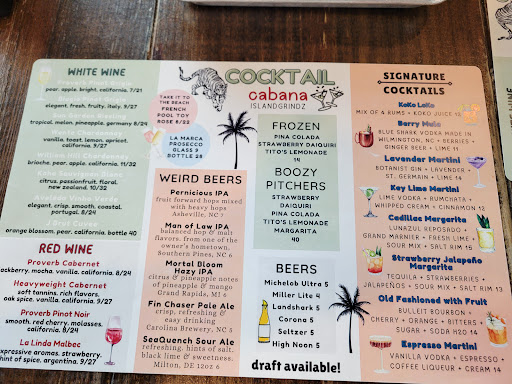 WHITE WINE
Proverb Pinot
pear, apple, bright, california. 7/21
elegant, fresh, fruity, italy. 9/27
tropical, melon, pineapple, germany 8/24
Chardonnay
vanilla, toast, lemon, apricot,
california. 9/27
Chardonnay
brioche, pear, apple, california. 11/30
Sauvignon Blanc
citrus, passionfruit, floral,
new zealand. 10/32
Vinho Verde
elegant, crisp, smooth, coastal,
portugal. 8/24
orange blossom, pear, california. bottle 40
RED WINE
Proverb Cabernet
blackberry, mocha, vanilla, california. 8/24
Heavyweight Cabernet
soft tannins, rich flavors,
oak spice, vanilla. 9/27
Proverb Pinot Noir
smooth, red cherry, molasses,
california. 8/24
La Linda Malbec
expressive aromas, strawberry,
hint of spice, argentina. 9/27
TAKE IT TO
THE BEACH
FRENCH
POOL TOY
ROSE 8/32
LA MARCA
PROSECCO
GLASS 9
BOTTLE 28
COCKTAIL
cabana
ISLANDGRINDZ
WEIRD BEERS
Pernicious IPA
fruit forward hops mixed
with heavy hops
Asheville, NC 7
Man of Law IPA
balanced hop & malt
flavors. from one of the
owner's hometown.
Southern Pines, NC 6
Mortal Bloom
Hazy IPA
citrus & pineapple notes
of pineapple & mango
Grand Rapids, MI 6
Fin Chaser Pale Ale
crisp, refreshing &
easy drinking
Carolina Brewery, NC 5
SeaQuench Sour Ale
refreshing, hints of salt,
black lime & sweetness.
Milton, DE 12oz 6
FROZEN
PINA COLADA
STRAWBERRY DAIQUIRI
TITO'S LEMONADE
14
BOOZY
PITCHERS
STRAWBERRY
DAIQUIRI
PINA COLADA
TITO'S LEMONADE
MARGARITA
40
BEERS
Michelob Ultra 5
Miller Lite 4
Landshark 5
Corona 5
Seltzer 5
High Noon 5
draft available!
SIGNATURE
COCKTAILS
KoKo LoKo
MIX OF 4 RUMS + KOKO JUICE 15
Berry Mule
BLUE SHARK VODKA MADE IN
WILMINGTON, NC + BERRIES +
GINGER BEER + LIME 11
Lavender Martini
BOTANIST GIN + LAVENDER +
ST. GERMAIN + LIME 14
Key Lime Martini
LIME VODKA + RUMCHATA +
WHIPPED CREAM + CINNAMON 12
Cadillac Margarita
LUNAZUL REPOSADO +
GRAND MARNIER + FRESH LIME +
SOUR MIX + SALT RIM 15
Strawberry Jalapeño
Margarita
TEQUILA + STRAWBERRIES +
JALAPEÑOS + SOUR MIX + SALT RIM 13
Old Fashioned with Fruit
BULLEIT BOURBON +
CHERRY + ORANGE + BITTERS +
SUGAR + SODA H2O 14
Espresso Martini
VANILLA VODKA + ESPRESSO +
COFFEE LIQUEUR + CREAM 14